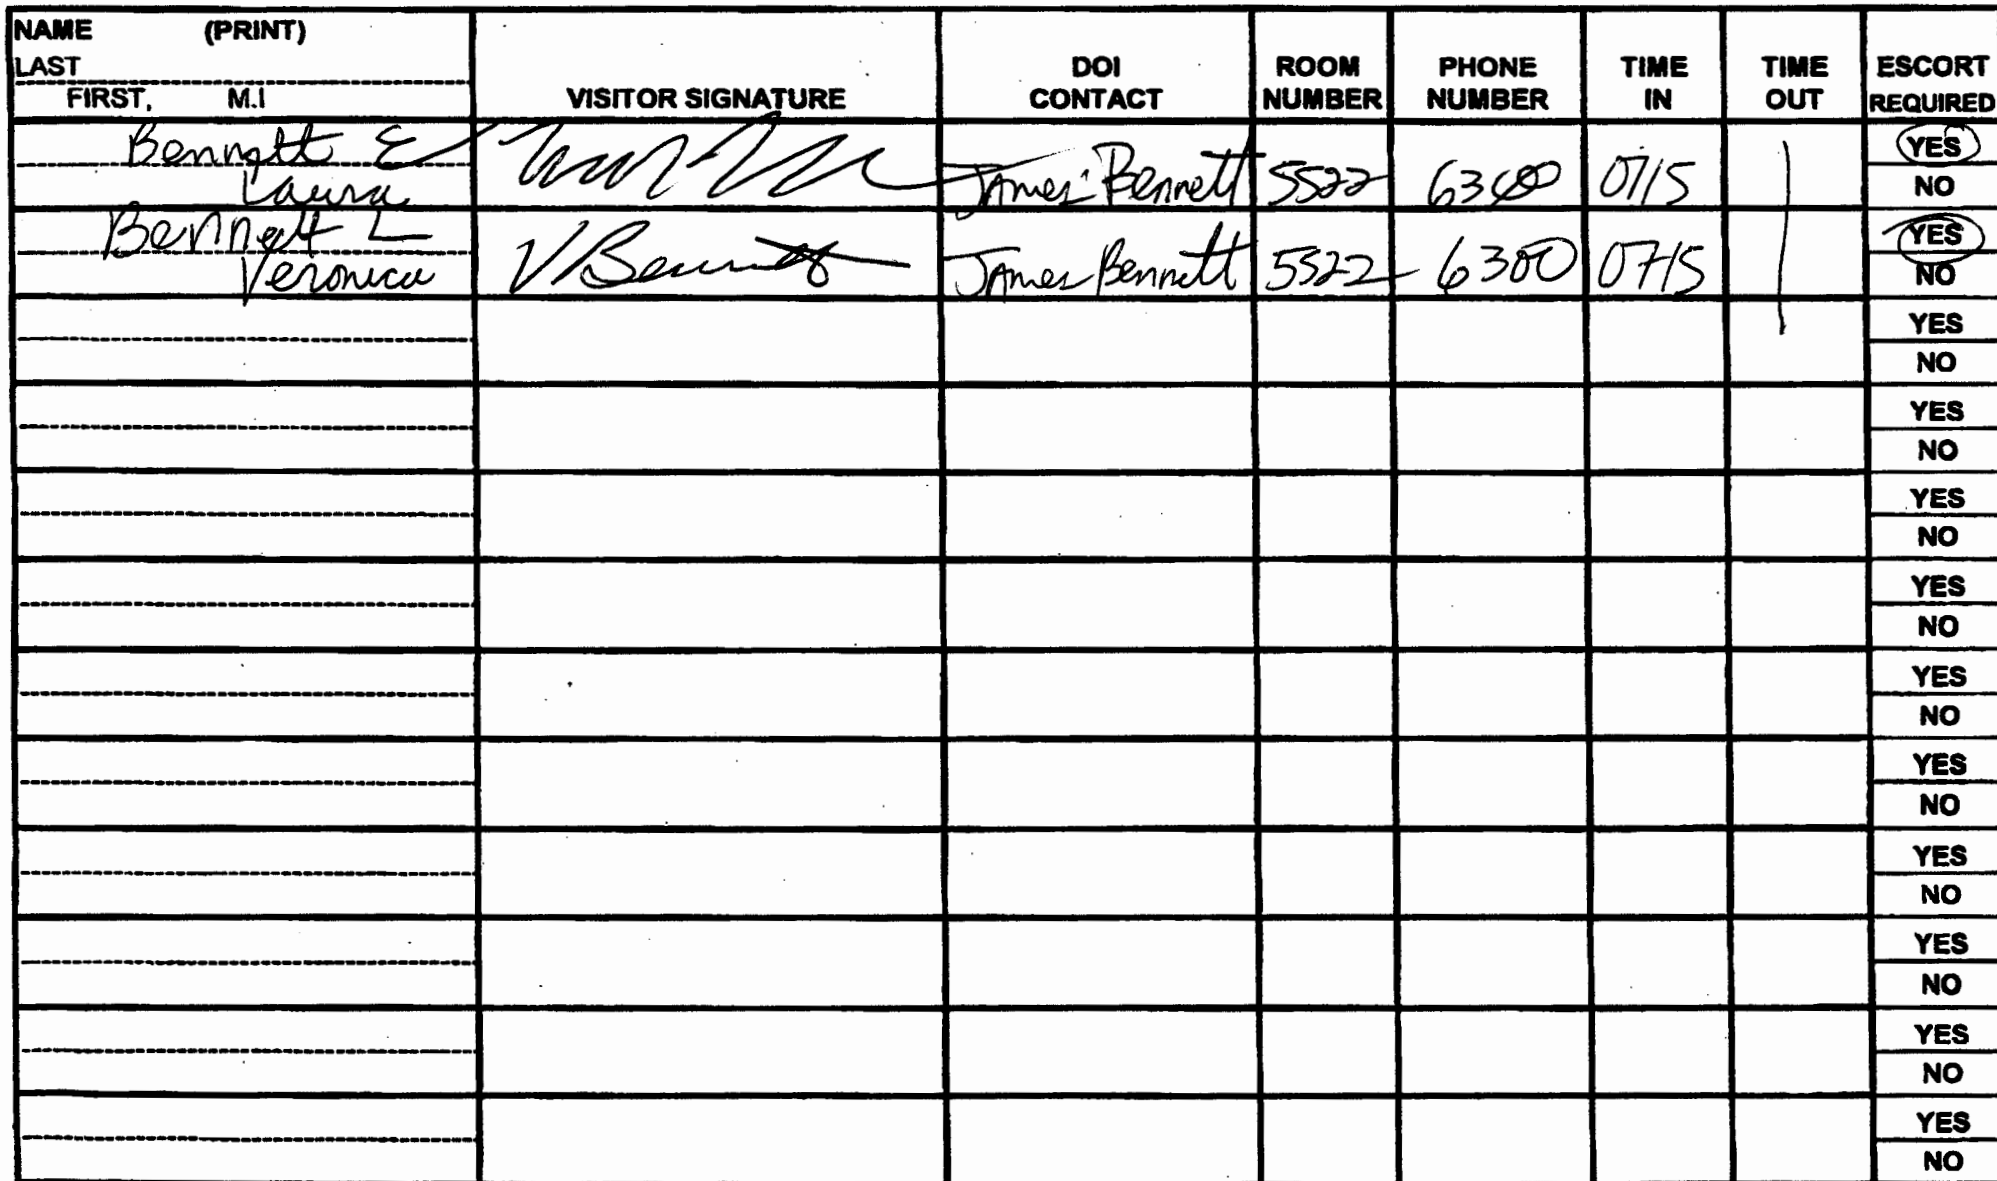 NAME (PRINT)
LAST
FIRST, M.I
VISITOR SIGNATURE
DOI CONTACT
ROOM NUMBER
PHONE NUMBER
TIME IN
TIME OUT
ESCORT REQUIRED
Bennett E
Laura
James Bennett 5522 0715
YES
NO
Bennett L
Veronica
V Bennett James Bennett 5522 6300 0715
YES
NO
YES
NO
YES
NO
YES
NO
YES
NO
YES
NO
YES
NO
YES
NO
YES
NO
YES
NO
YES
NO